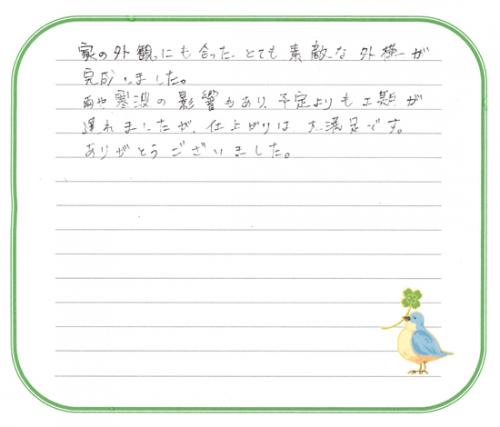 家の外観にも合った、とても素敵な外構が
完成しました。
雨や寒波の影響もあり、予定よりも工期が
遅れましたが、仕上がりは大満足です。
ありがとうございました。